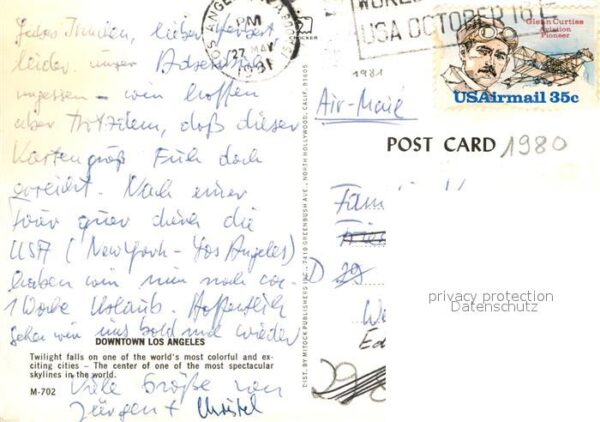 lieber Herbert
leider unser
vergessen – wir hoffen
aber trotzdem, daß dieser
Kartengruß Euch doch
erreicht. Nach einer
Tour quer durch die
USA (New York – Los Angeles)
haben wir nun noch ca.
1 Woche Urlaub. Hoffentlich
sehen wir uns bald mal wieder
DOWNTOWN LOS ANGELES
Twilight falls on one of the world's most colorful and ex-
citing cities – The center of one of the most spectacular
skylines in the world.
M-702
Viele Grüße von
Jürgen + Christel
LOS ANGELES
PM
27 MAY
1981
USA OCTOBER
Glenn Curtiss
Aviation
Pioneer
USAirmail 35c
1981
Air-Mail
POST CARD
1980
DIST. BY MITOCK PUBLISHERS INC., 7419 GREENBUSH AVE., NORTH HOLLYWOOD, CALIF. 91605
Fam
D
privacy protection
Datenschutz